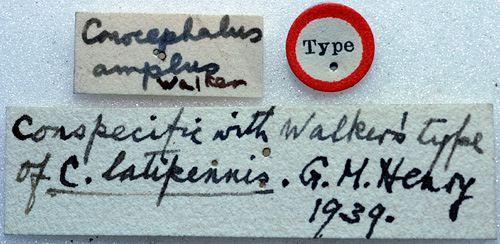 Conocephalus
amplus
Walker
Type
Conspecific with Walker's type
of C. latipennis. G. M. Henry
1939.